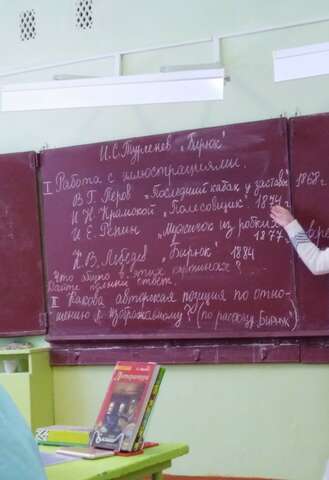 И.С.Тургенев „Бирюк"
I Работа с иллюстрациями.
В Г Перов „Последний кабак у заставы 1868 г.
И Н Крамской „Полесовщик" 1874 г
И Е Репин „Мужичок из робких"
1877 г
К. В. Лебедев „Бирюк" 1884
Что общего в этих картинах?
Дайте полный ответ.
II Какова авторская позиция по отно-
шению к изображаемому? (по рассказу „Бирюк")
Литература